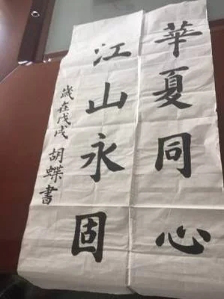 華夏同心
江山永固
歲在戊戌 胡蝶書